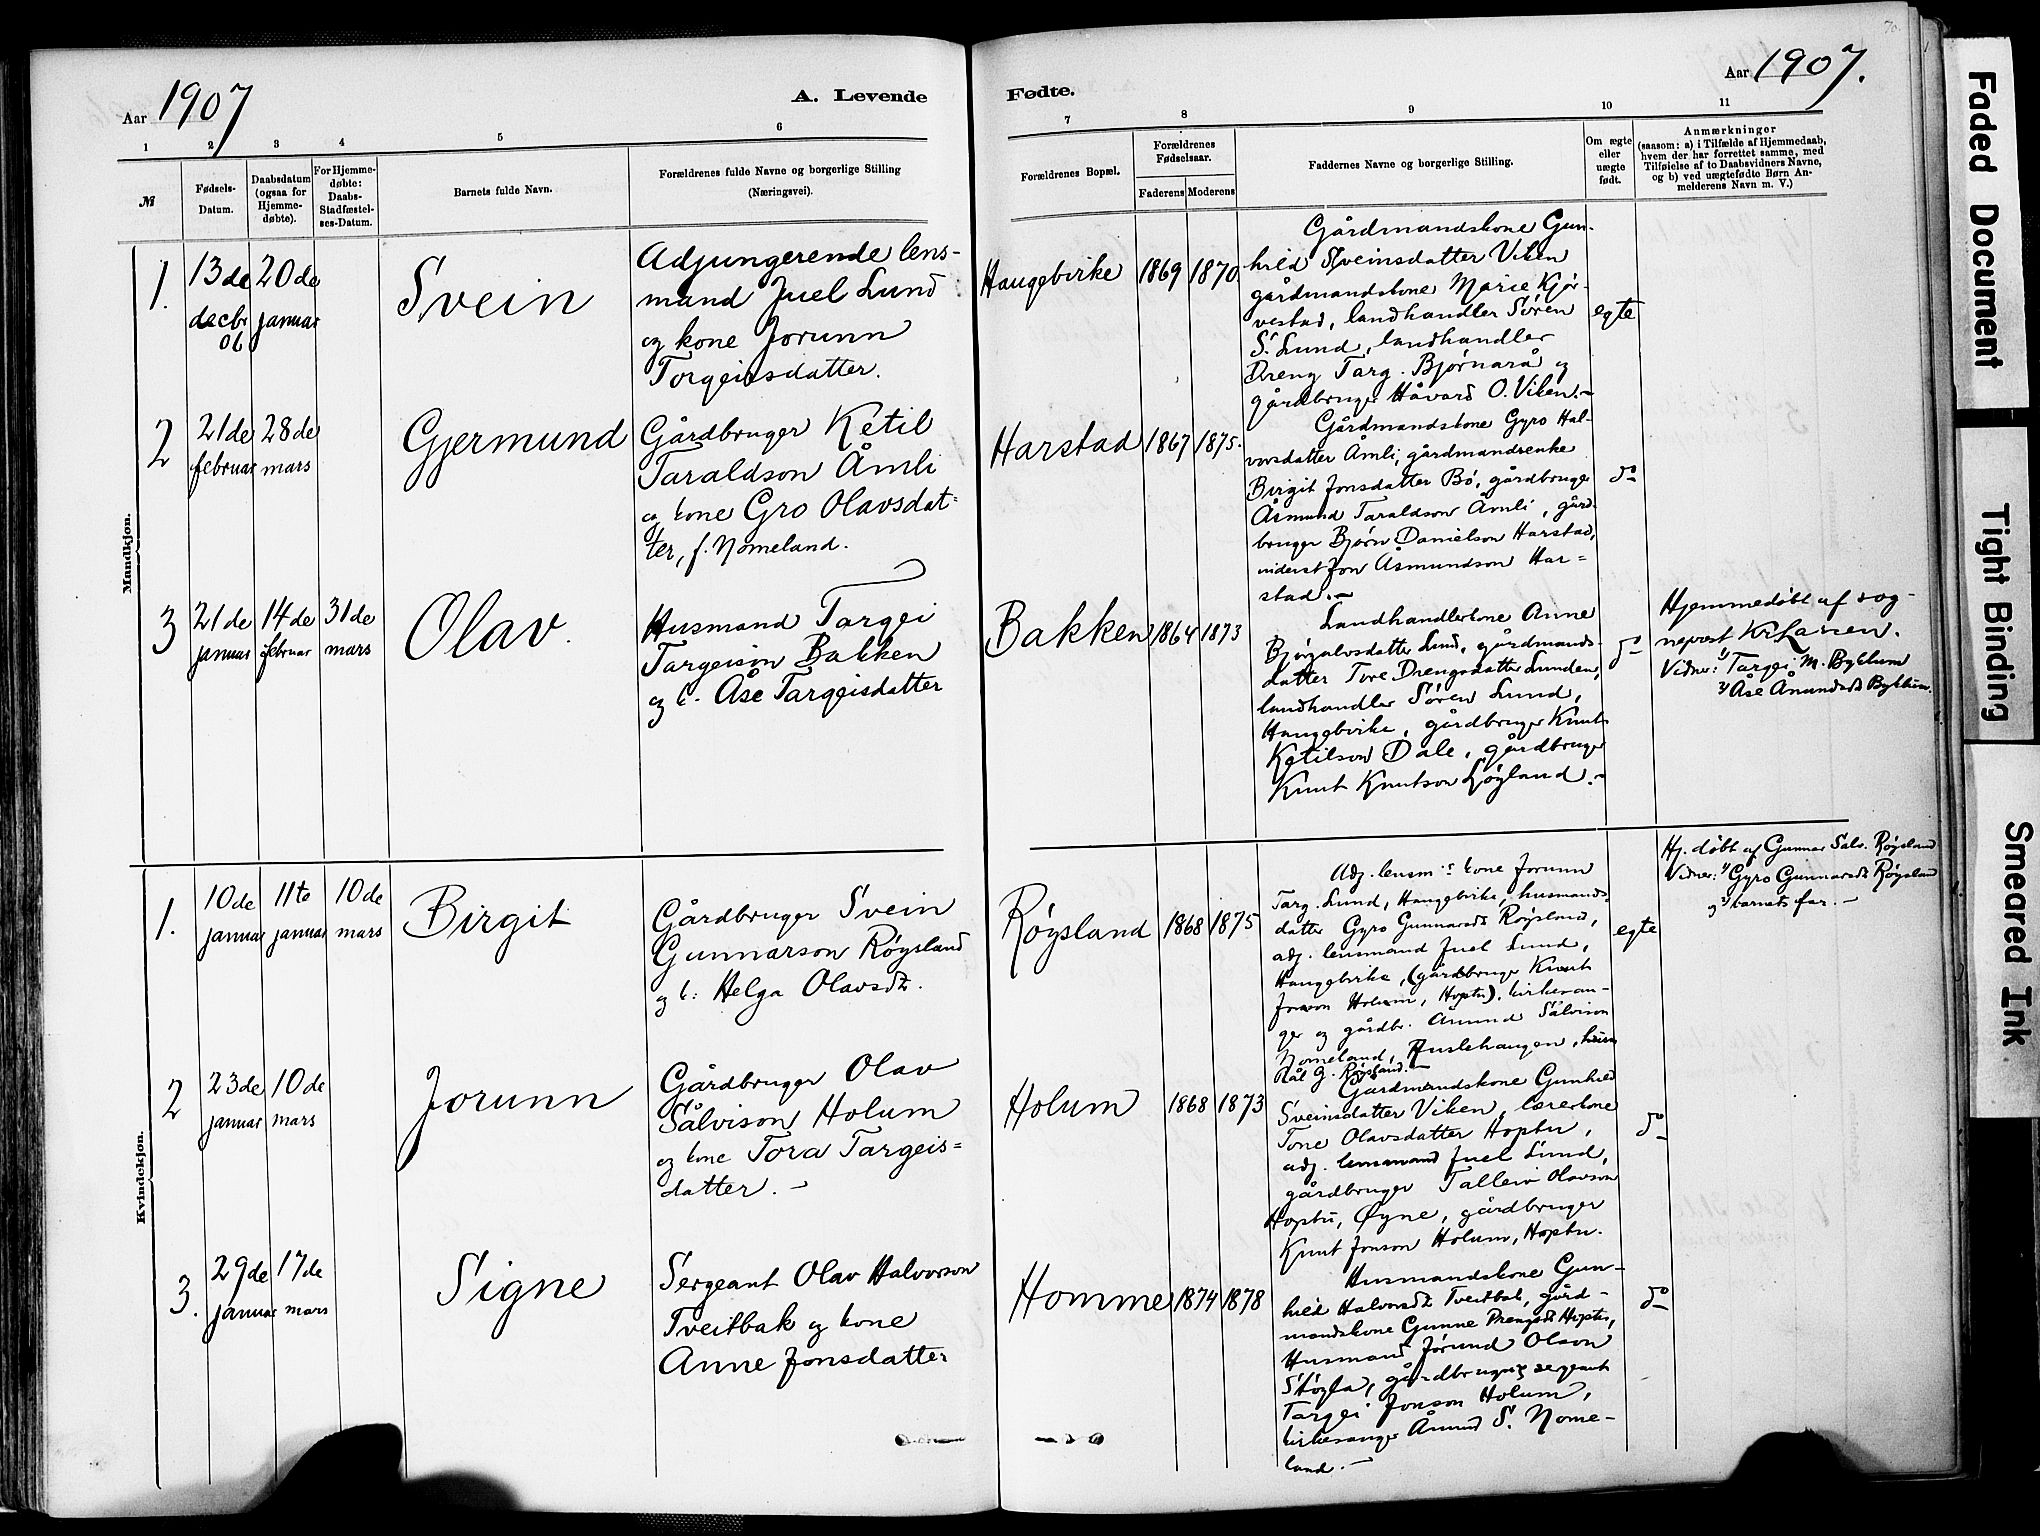 70.
Aar 1907
A. Levende
Fødte.
Aar 1907.
1
2
3
4
5
6
7
8
9
10
11
№
Fødsels-
Datum.
Daabsdatum
(ogsaa for
Hjemme-
døbte).
For Hjemme-
døbte:
Daabs-
Stadfæstel-
ses-Datum.
Barnets fulde Navn.
Forældrenes fulde Navne og borgerlige Stilling
(Næringsvei).
Forældrenes Bopæl.
Forældrenes
Fødselsaar.
Faderens
Moderens
Faddernes Navne og borgerlige Stilling.
Om ægte
eller
uægte
født.
Anmærkninger
(saasom: a) i Tilfælde af Hjemmedaab,
hvem der har forrettet samme, med
Tilføielse af to Daabsvidners Navne,
og b) ved uægtefødte Børn An-
melderens Navn m. V.)
Mandkjøn.
1.
13de
decbr
06
20de
januar
Svein
Adjungerende lens-
mand Juel Lund
og kone Jorunn
Torgeirsdatter.
Haugebirke
1869
1870.
Gårdmandskone Gun-
hild Sveinsdatter Viken
gårdmandskone Marie Kjør-
vestad, landhandler Søren
S. Lund, landhandler
Dreng Targ. Bjørnarå og
gårdbruger Håvard O. Viken.-
egte
2
21de
februar
28de
mars
Gjermund
Gårdbruger Ketil
Taraldson Åmli
og kone Gro Olavsdat-
ter, f. Nomeland.
Harstad
1867
1875.
Gårdmandskone Gyro Hal-
vorsdatter Åmli, gårdmandsenke
Birgit Jonsdatter Bø, gårdbruger
Åsmund Taraldson Åmli, gård-
bruger Bjørn Danielson Harstad,
Jon Åsmundson Har-
stad.-
do
3
21de
januar
14de
februar
31de
mars
Olav.
Husmand Targei
Targeison Bakken
og k. Åse Targeisdatter
Bakken
1864
1873
Landhandlerkone Anne
Bjørgulvsdatter Lund, gårdmands-
datter Tore Drengsdatter Lunden,
landhandler Søren Lund,
Haugebirke, gårdbruger Knut
Ketilson Dale, gårdbruger
Knut Knutson Løyland.-
do
Hjemmedøbt af sog-
neprest Kr. Larsen.
Vidner: 1) Targei M. Byklum
2) Åse Ånundsdt Byklum.
Kvindekjøn.
1.
10de
januar
11te
januar
10de
mars
Birgit
Gårdbruger Svein
Gunnarson Røysland
og k: Helga Olavsdt.
Røysland
1868
1875
Adj. lensm:s kone Jorunn
Targ. Lund, Haugebirke, husmands-
datter Gyro Gunnarsdt Røysland,
adj. lensmand Juel Lund,
Haugebirke, (gårdbruger Knut
Jonson Holum, Hoptu), kirkesan-
ger og gårdbr. Ånund Sålvison
Nomeland, Huslehaugen,
Pål G. Røysland.-
egte
Hj. døbt af Gunnar Salv. Røysland
Vidner: 1) Gyro Gunnarsdt Røysland
og 2) barnets far.-
2
23de
januar
10de
mars
Jorunn
Gårdbruger Olav
Sålvison Holum
og kone Tora Targeis-
datter.-
Holum
1868
1873
Gårdmandskone Gunhild
Sveinsdatter Viken, lærerkone
Tone Olavsdatter Hoptu,
adj. lensmand Juel Lund,
gårdbruger Talleiv Olavson
Hoptu, Øyne, gårdbruger
Knut Jonson Holum, Hoptu.
do
3.
29de
januar
17de
mars
Signe
Sergeant Olav Halvorson
Tveitbak og kone
Anne Jonsdatter
Homme
1874
1878
Husmandskone Gun-
hild Halvorsdt Tveitbak, gård-
mandskone Gunne Drengsdt Hoptu,
Husmand Jørund Olson
Støyla, gårdbruger sergeant
Targei Jonson Holum,
kirkesanger Ånund S. Nome-
land.-
do
Faded Document
Tight Binding
Smeared Ink